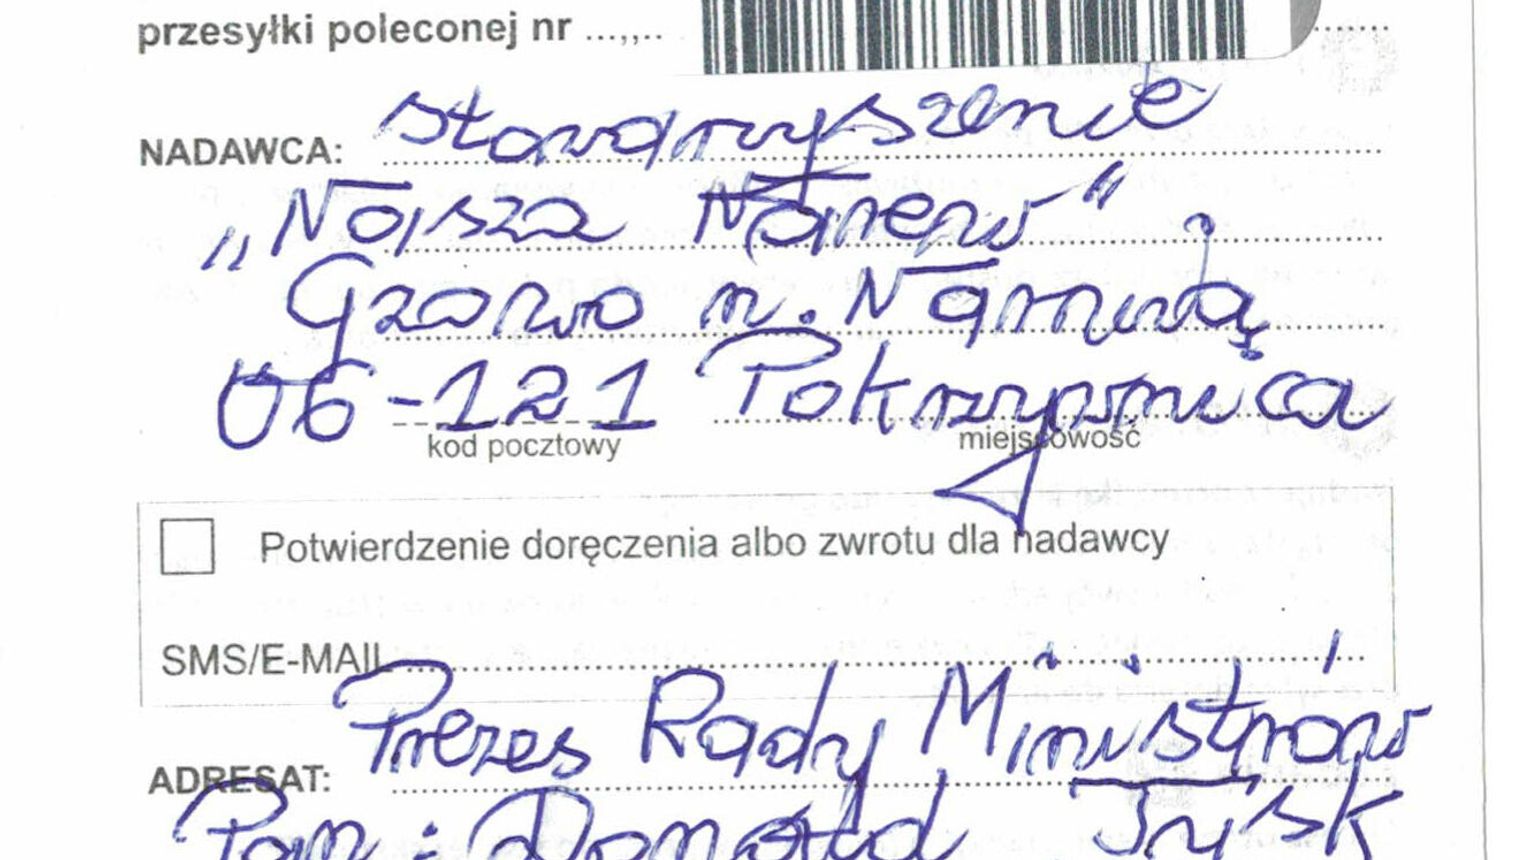 przesyłki poleconej nr ...,,..
NADAWCA: Stowarzyszenie
„Nasza Narew"
Gzowo n. Narwią
06-121 Pokrzywnica
kod pocztowy miejscowość
Potwierdzenie doręczenia albo zwrotu dla nadawcy
SMS/E-MAIL
ADRESAT: Prezes Rady Ministrów
Pan: Donald Tusk